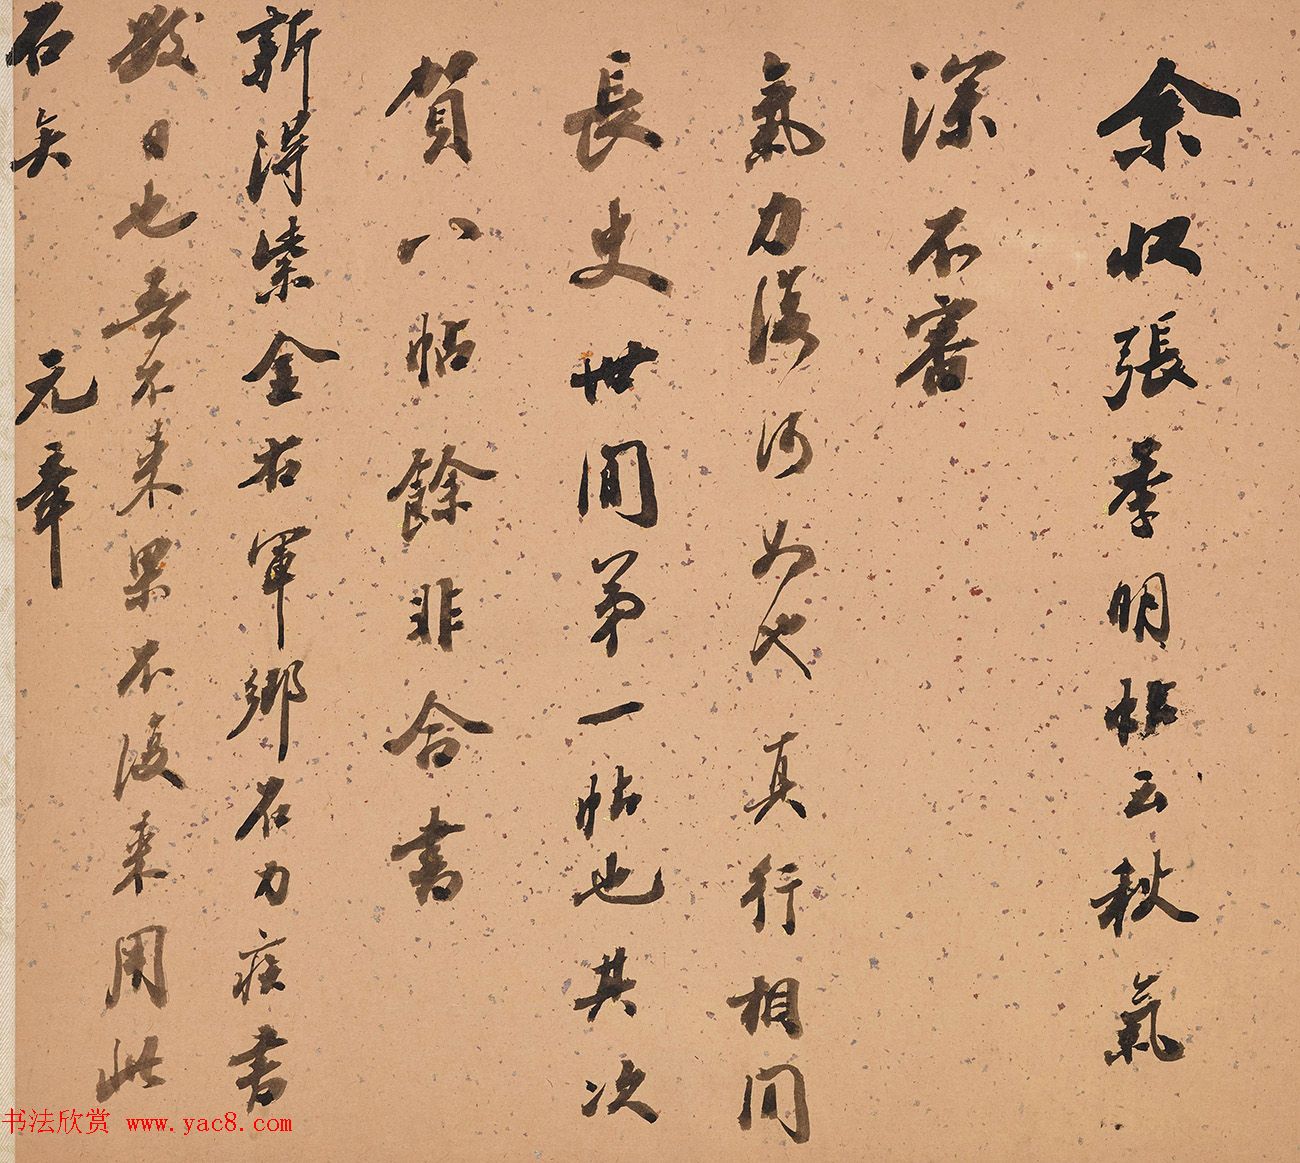 余收張季明帖云秋氣
深不審
氣力復何如也真行相間
長史世間第一帖也其次
賀八帖餘非合書
新得紫金右軍鄉石力疾書
數日也吾不來果不復來用此
石矣　元章
书法欣赏 www.yac8.com